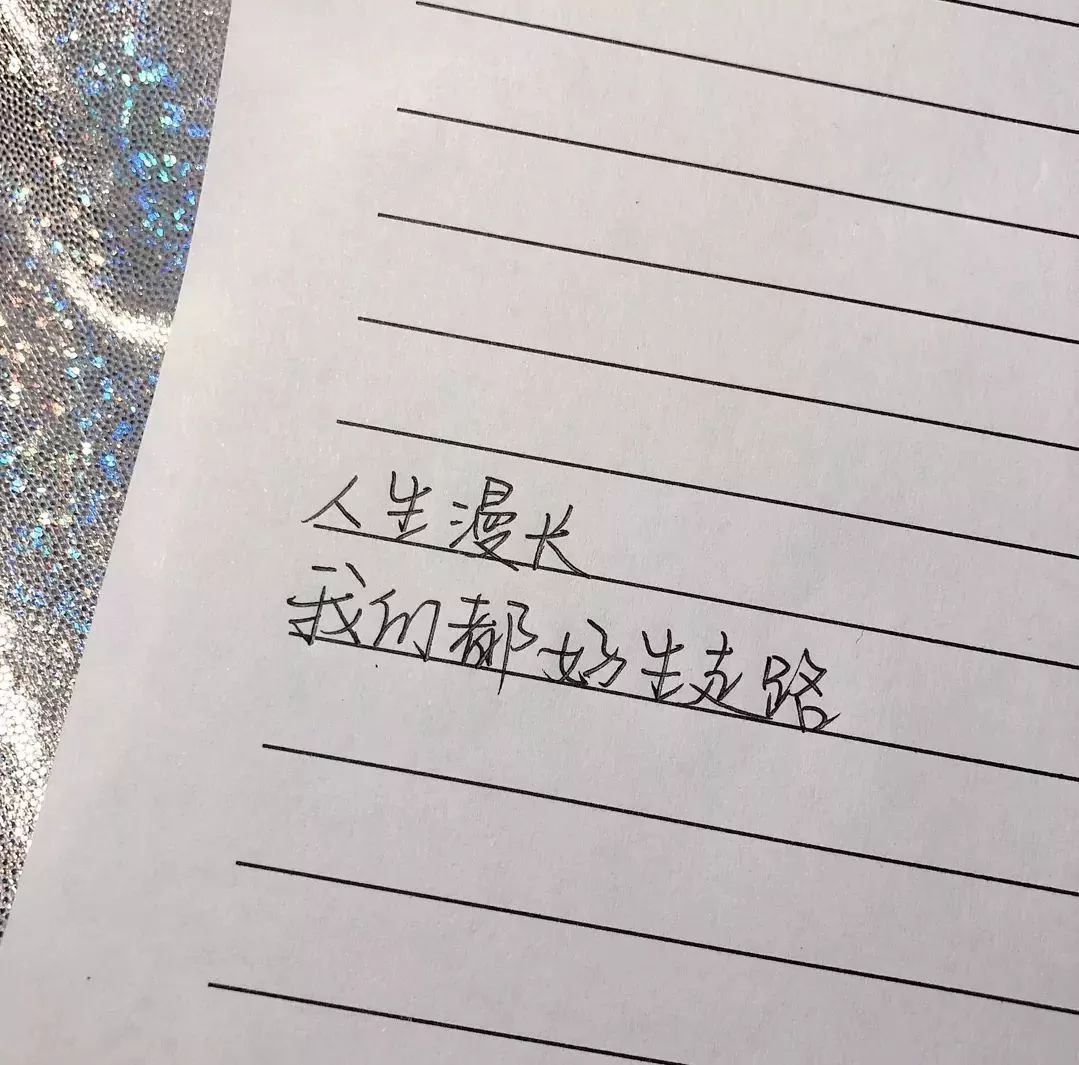 人生漫长
我们都好生走路